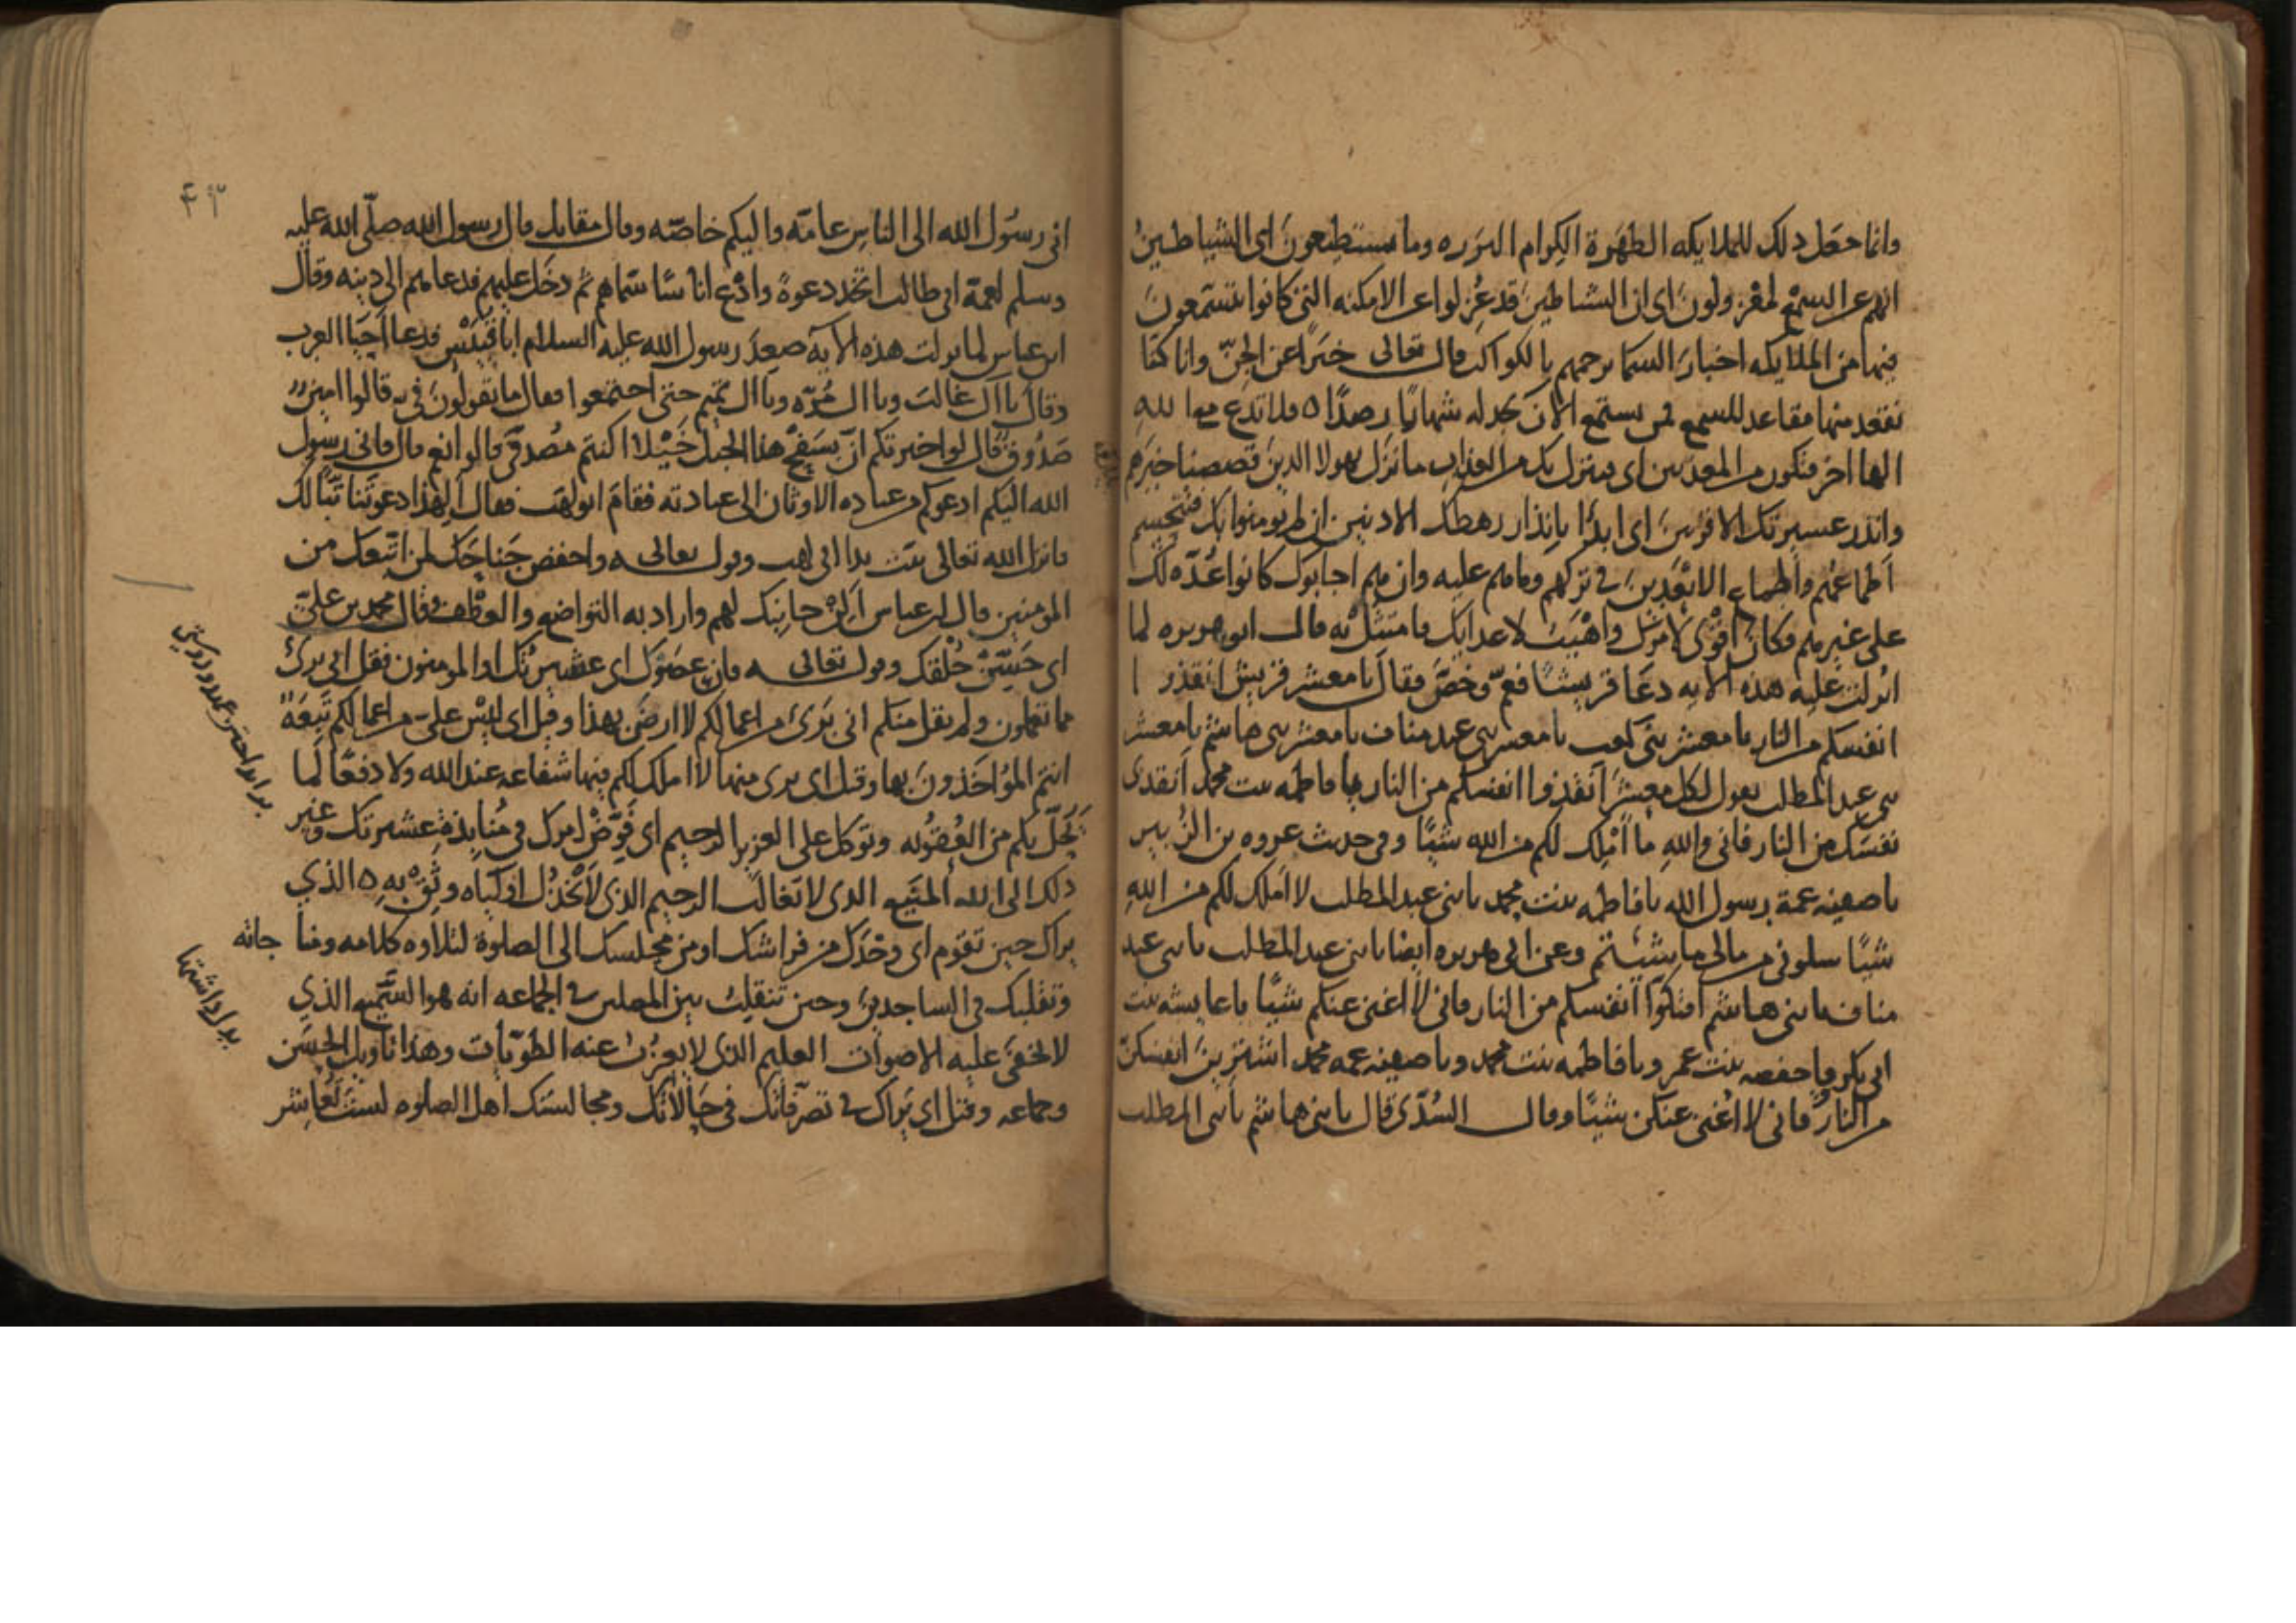 وانما جعل ذلك للملايكه الطهرة الكرام البرره وما يستطيعون اى الشياطين
انهم عن السمع لمعزولون اى ان الشياطين قد عزلوا عن الامكنه التى كانوا يستمعون
فيها من الملايكه اخبار السما برجمهم بالكواكب قال تعالى خبرا عن الجن وانا كنا
نقعد منها مقاعد للسمع فمن يستمع الان يجد له شهابا رصدا ه فلا تدع مع الله
الها اخر فتكون من المعذبين اى فينزل بك من العذاب ما نزل بهولا الذين قصصنا خبرهم
وانذر عشيرتك الاقربين اى ابدا بانذار رهطك الادنين ان لم يومنوا بك فتحسم
اطماعهم واطماع الابعدين فى تركهم وما هم عليه وان هم اجابوك كانوا عدة لك
على غيرهم فكان اقوى لامرك واهيب لاعدايك فامتثل به قال ابو هريره لما
انزلت عليه هذه الايه دعا قريشا فعم وخص فقال يا معشر قريش انقذوا
انفسكم من النار يا معشر بنى كعب يا معشر بنى عبد مناف يا معشر بنى هاشم يا معشر
بنى عبد المطلب يقول لكل معشر انقذوا انفسكم من النار يا فاطمه بنت محمد انقذى
نفسك من النار فانى والله ما املك لكم من الله شيئا وفى حديث عروه بن الزبير
يا صفيه عمة رسول الله يا فاطمه بنت محمد يا بنى عبد المطلب لا املك لكم من الله
شيئا سلونى من مالى ما شيئتم وعن ابى هريره ايضا يا بنى عبد المطلب يا بنى عبد
مناف يا بنى هاشم افتكوا انفسكم من النار فانى لا اغنى عنكم شيئا يا عايشه بنت
ابى بكر ويا حفصه بنت عمر ويا فاطمه بنت محمد ويا صفيه عمه محمد اشترين انفسكن
من النار فانى لا اغنى عنكن شيئا وقال السدى قال يا بنى هاشم يا بنى المطلب
انى رسول الله الى الناس عامة واليكم خاصة وقال مقاتل قال رسول الله صلى الله عليه
وسلم لعمه ابى طالب اتخذ دعوة وادع اناسا سماهم ثم دخل عليهم فدعاهم الى دينه وقال
ابن عباس لما نزلت هذه الايه صعد رسول الله عليه السلام ابا قبيس فدعا احيا العرب
وقال يا آل غالب ويا ال مره ويا ال تميم حتى اجتمعوا فقال ما تقولون فى قالوا امين
صدوق قال لو اخبرتكم ان بسفح هذا الجبل خيلا اكنتم مصدقى قالوا نعم قال فانى رسول
الله اليكم ادعوكم من عباده الاوثان الى عبادته فقام ابو لهب فقال الهذا دعوتنا تبا لك
فانزل الله تعالى تبت يدا ابى لهب وقوله تعالى ه واخفض جناحك لمن اتبعك من
المومنين قال ابن عباس الن جانبك لهم واراد به التواضع والعطف وقال محمد بن على
اى حسن خلقك وقوله تعالى ه فان عصوك اى عشيرتك او المومنون فقل انى برى
مما تعملون ولم يقل منكم انى برى من اعمالكم لا ارضى بهذا وقيل اى ليس على من اعمالكم تبعة
انتم المواخذون بها وقيل اى برى منها لا املك لكم فيها شفاعه عند الله ولا دفعا لما
يحل بكم من العقوبه وتوكل على العزيز الرحيم اى فوض امرك فى منابذة عشيرتك وغير
ذلك الى الله المنيع الذى لا يغالب الرحيم الذى لا يخذل اولياه وثق به ه الذي
يراك حين تقوم اى وحدك من فراشك او من مجلسك الى الصلوة لتلاوه كلامه ومناجاته
وتقلبك فى الساجدين وحين تنقلب بين المصلين فى الجماعه انه هو السميع الذي
لا تخفى عليه الاصوات العليم الذى لا يعزب عنه الطويات وهذا تاويل الحسن
وجماعه وقيل اى يراك فى تصرفاتك فى حالاتك ومجالستك اهل الصلوه لست تعاشر